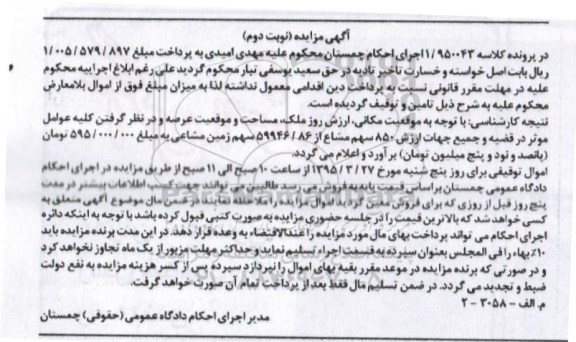 آگهی مزایده (نوبت دوم)
در پرونده کلاسه ۱/۹۵۰۰۴۳ اجرای احکام چمستان محکوم علیه مهدی امیدی به پرداخت مبلغ ۱/۰۰۵/۵۷۹/۸۹۷
ریال بابت اصل خواسته و خسارت تاخیر تادیه در حق سعید یوسفی نیاز محکوم گردید علی رغم ابلاغ اجراییه محکوم
علیه در مهلت مقرر قانونی نسبت به پرداخت دین اقدامی معمول نداشته لذا به میزان مبلغ فوق از اموال بلامعارض
محکوم علیه به شرح ذیل تامین و توقیف گردیده است.
نتیجه کارشناسی: با توجه به موقعیت مکانی، ارزش روز ملک، مساحت و موقعیت عرصه و در نظر گرفتن کلیه عوامل
موثر در قضیه و جمیع جهات ارزش ۸۵۰ سهم مشاع از ۵۹۹۴۶/۸۶ سهم زمین مشاعی به مبلغ ۵۹۵/۰۰۰/۰۰۰ تومان
(پانصد و نود و پنج میلیون تومان) برآورد و اعلام می گردد.
اموال توقیفی برای روز پنج شنبه مورخ ۱۳۹۵/۳/۲۷ از ساعت ۱۰ صبح الی ۱۱ صبح از طریق مزایده در اجرای احکام
دادگاه عمومی چمستان براساس قیمت پایه به فروش می رسد طالبین می توانند جهت کسب اطلاعات بیشتر در مدت
پنج روز قبل از روزی که برای فروش معین گردید اموال مزایده را ملاحظه نمایند در ضمن مال موضوع آگهی متعلق به
کسی خواهد شد که بالاترین قیمت را در جلسه حضوری مزایده به صورت کتبی قبول کرده باشد با توجه به اینکه دائره
اجرای احکام می تواند پرداخت بهای مال مورد مزایده را عندالاقتضاء به وعده قرار دهد. در این مدت برنده مزایده باید
۱۰٪ بهاء را فی المجلس بعنوان سپرده به قسمت اجراء تسلیم نماید و حداکثر مهلت مزبور از یک ماه تجاوز نخواهد کرد
و در صورتی که برنده مزایده در موعد مقرر بقیه بهای اموال را نپردازد سپرده پس از کسر هزینه مزایده به نفع دولت
ضبط و تجدید می گردد. در ضمن تسلیم مال فقط بعد از پرداخت تمام آن صورت خواهد گرفت.
م. الف - ۳۰۵۸ - ۲
مدیر اجرای احکام دادگاه عمومی (حقوقی) چمستان